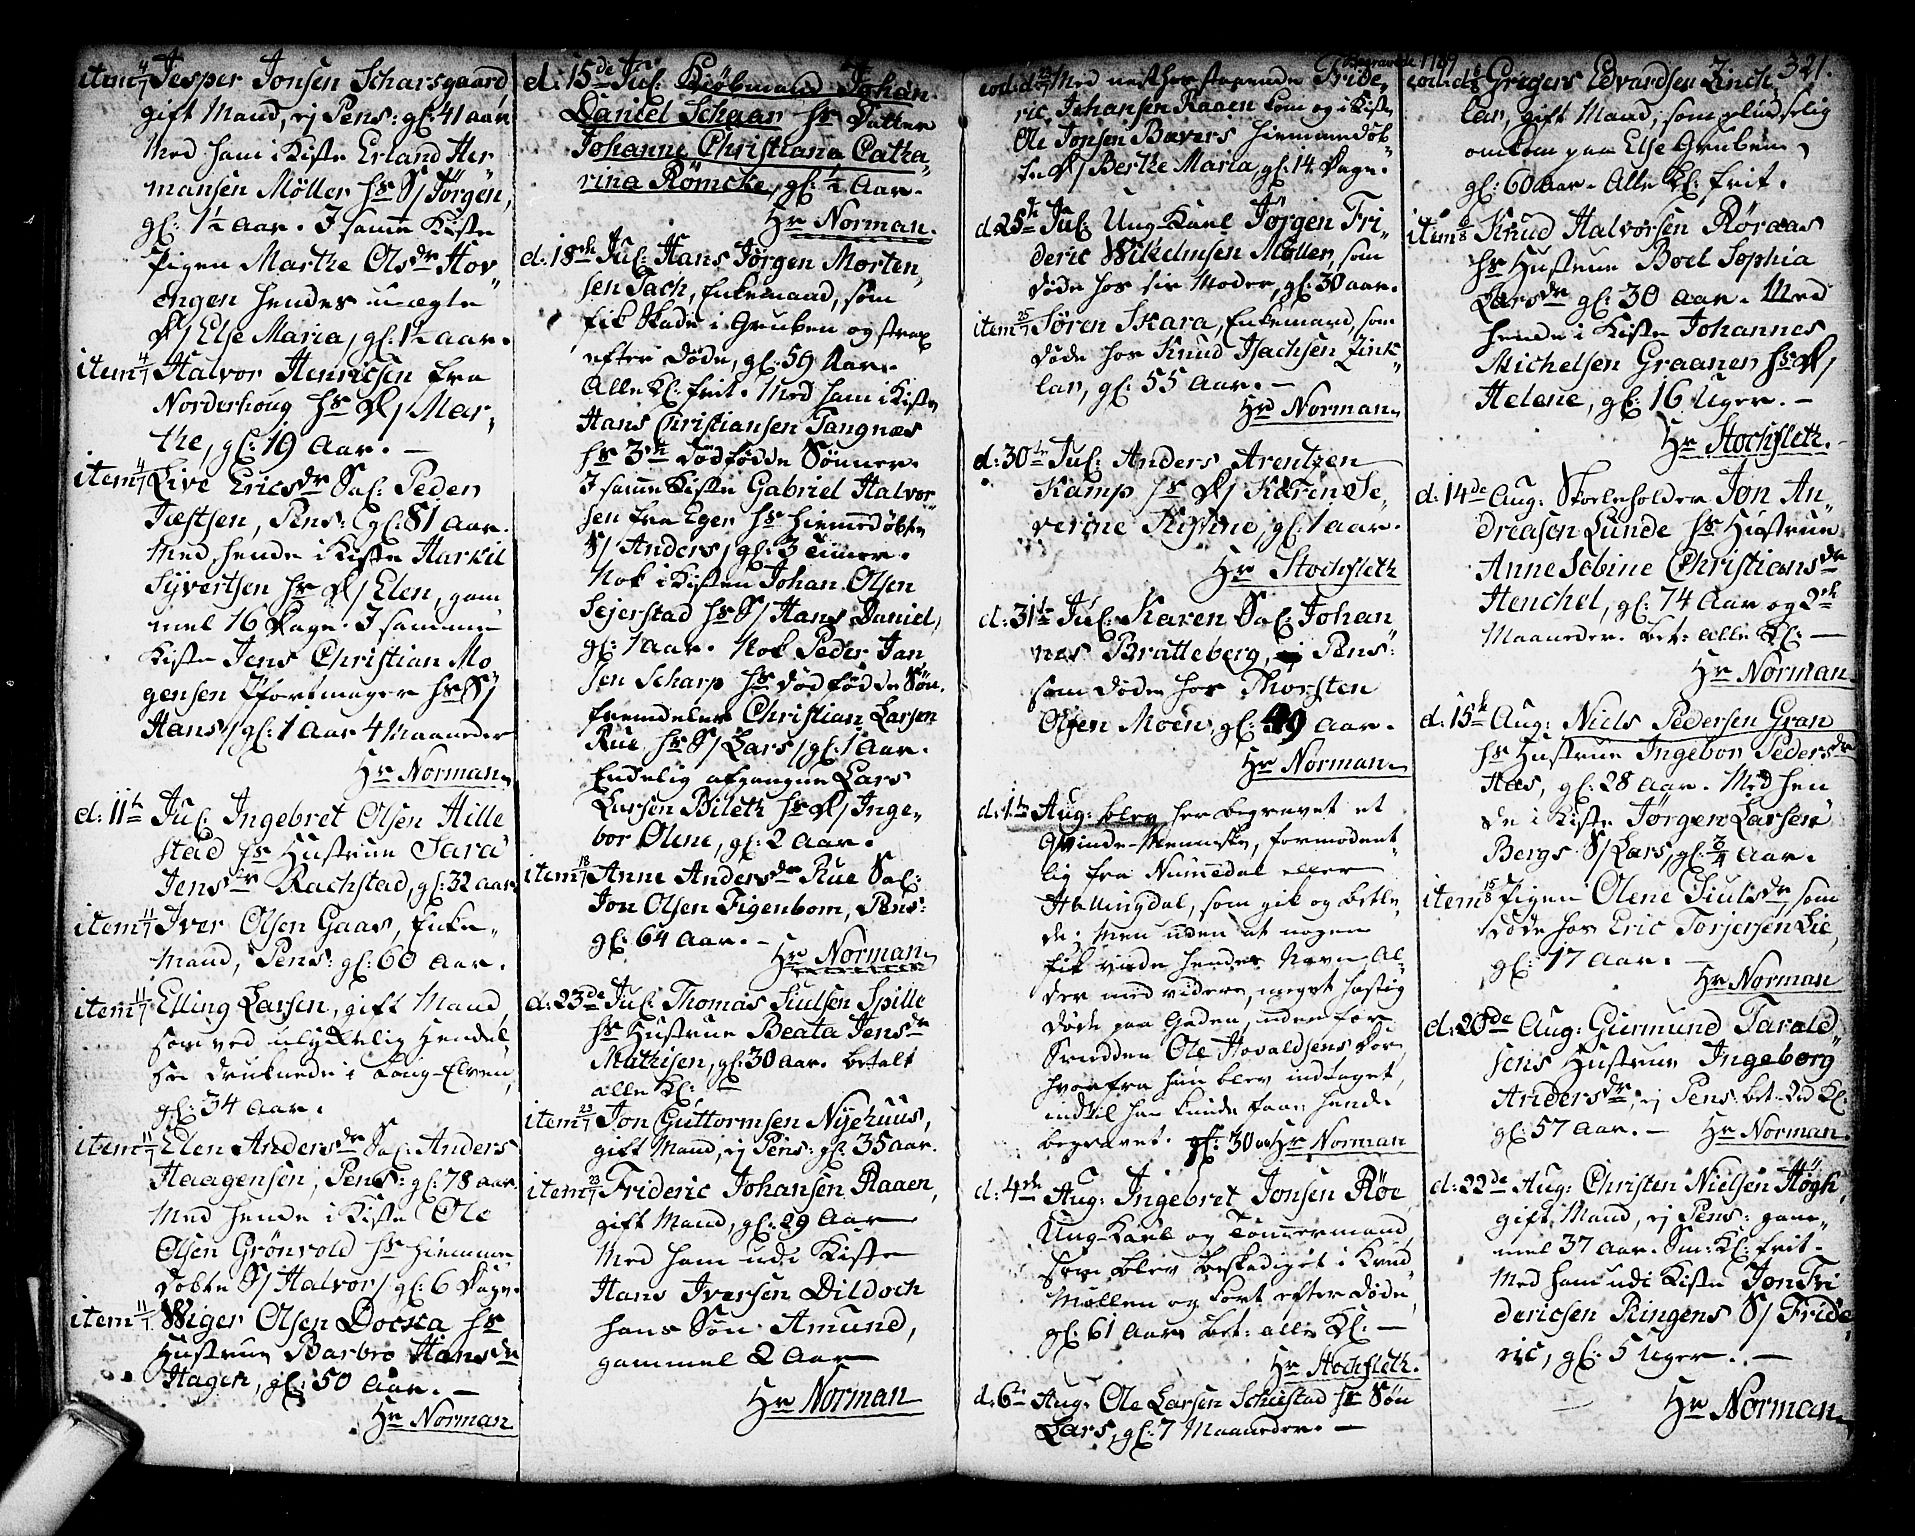 item 4/7 Jesper Jonsen Scharsgaard,
gift Mand, ej Pens: gl: 41 aar
Med ham i Kiste Erland Her„
mansen Möller hs S/ Jörgen,
gl: 1½ Aar. I samme Kiste
Pigen Marthe Olsdr Hov„
engen hendes uægte
D/ Else Maria, gl: 1½ aar.
item 4/7 Halvor Henricsen fra
Norderhoug hs D/ Mar„
the, gl: 19 Aar. —
item 4/7 Live Ericsdr Sal: Peder
Jæstsen, Pens: gl: 81 Aar.
Med hende i Kiste Harkil
Syvertsen hs D/ Elen, gam
mel 16 Dage. I samme
Kiste Jens Christian Mo„
gensen hs S/
Hans, gl: 1 Aar 4 Maaneder
Hr Norman
d: 11te Jul: Ingebret Olsen Hille„
stad hs Hustrue Sara
Jensdr Rachstad, gl: 32 aar.
item 11/7 Iver Olsen Gaas, Enke„
Mand, Pens: gl: 60 Aar.
item 11/7 Elling Larsen, gift Mand,
som ved ulykkelig Hendel„
se druknede i Loug-Elven,
gl: 34 Aar.
item 11/7 Elen Andersdr Sal: Anders
Haagensen, Pens: gl: 78 aar.
Med hende i Kiste Ole
Olsen Grönvold hs hiemme
döbte S/ Halvor, gl: 6 Dage.
item 11/7 Wiger Olsen Docka hs
Hustrue Barbro Hansdr
Hagen, gl: 50 Aar. —
Hr Norman
d: 15de Jul: Kiöbmand Johan
Daniel Schaar hs Datter
Johanne Christiana Catha„
rina Römcke, gl: ½ Aar.
Hr Norman.
d: 18de Jul: Hans Jörgen Morten„
sen Tach, Enkemand, som
fik Skade i Gruben og strax
efter döde, gl: 59 Aar.
Alle Kl: frit. Med ham i Kiste
Hans Christiansen Tangnæs
hs 3de dödfödde Sönner.
I samme Kiste Gabriel Halvor„
sen fra Eger hs hiemmedöbte
S/ Anders, gl: 3 Timer.
Nok i Kisten Johan Olsen
Sejerstad hs S/ Hans Daniel,
gl: 1 Aar. Nok Peder Jan
sen Scharp hs dödfödde Sön.
fremdeles Christian Larsen
Rue, hs S/ Lars, gl: 1 Aar.
Endelig afgangne Lars
Larsen Bileth hs D/ Inge„
bor Olene, gl: 2 Aar.
item 18/7 Anne Andersdr Rue Sal:
Jon Olsen Figenbom, Pens:
gl: 64 Aar. —
Hr Norman
d: 23de Jul: Thomas Siulsen Spille
hs Hustrue Beata Jensdr
Mathisen, gl: 30 Aar. betalt
alle Kl:
item 23/7 Jon Guttormsen Nyehuus,
gift Mand, ej Pens: gl: 35 aar.
item 23/7 Frideric Johansen Raaen,
gift Mand, gl: 29 Aar
Med ham udi Kiste
Hans Iversen Dildoch
hans Sön Amund,
gammel 2 Aar
Hr Norman
Begravede 1789
321.
eod: d: 23/7 Med næsthosstaaende Fride„
ric Johansen Raaen kom og i Kiste
Ole Jonsen Bævers hiemmedöb„
te D/ Berthe Maria, gl: 14 Dage.
d. 25de Jul: Ung-Karl Jörgen Fri„
deric Wilhelmsen Möller, som
döde hos sin Moder, gl: 30 aar.
item 25/7 Sören Skara, Enkemand, som
döde hos Knud Isachsen Zink„
lar, gl: 55 Aar. —
Hr Norman
d: 30te Jul: Anders Arentzen
Kamp hs D/ Karen Se„
verine Kistine, gl: 1 aar.
Hr Stochfleth
d: 31te Jul: Karen Sal: Johan„
nes Bratteberg, Pens:
som döde hos Thorsten
Olsen Moen, gl: 49 Aar.
Hr Norman
d: 1te Aug: blev her begravet et
Qvinde-Menniske, formodent„
lig fra Numedal eller
Hallingdal, som gik og betle„
de; men uden at nogen
fik viide hendes Navn Al„
der med videre, meget hastig
döde paa Gaden, uden for
Ole Hovaldsens Dör,
hvorfra hun blev indtaget,
indtil han kunde faae hende
begravet. gl: 30 aar Hr Norman
d: 4de Aug: Ingebret Jonsen Röe
Ung-Karl og Tömmermand,
som blev beskadiget i Krud„
Möllen og kort efter döde,
gl: 61 Aar bet: alle Kl: —
Hr Stochfleth.
d: 6te Aug: Ole Larsen Scheistad hs Sön
Lars, gl: 7 Maaneder. —
eod: d: 6/8 Gregers Edvardsen Zinch„
lar, gift Mand, som pludselig
omkom paa Else Gruben,
gl: 60 aar. Alle Kl: frit.
item 6/8 Knud Halvorsen Röraas
hs Hustrue Boel Sophia
Larsdr gl: 30 Aar. Med
hende i Kiste Johannes
Michelsen Graanes hs D/
Helene, gl: 16 Uger. —
Hr Stochfleth.
d: 14de Aug: Skoleholder Jon An„
dreasen Lunde hs Hustrue
Anne Sebine Christiansdr
Henchel, gl: 74 Aar og 2de
Maaneder. bet: alle Kl: —
Hr Norman
d: 15de Aug: Niels Pedersen Gran
hs Hustrue Ingebor Pedersdr
Has, gl: 28 Aar. Med hen
de i Kiste Jörgen Larsen
Bergs S/ Lars, gl: 3/4 Aar.
item 15/8 Pigen Olene Siulsdr, som
döde hos Eric Torjersen Lie,
gl: 17 Aar. —
Hr Norman
d: 20de Aug: Giermund Tarald„
sens Hustrue Ingeborg
Andersdr, ej Pens: bet: 2d Kl:
gl: 57 Aar. — Hr Norman.
d: 22de Aug: Christen Nielsen Högh,
gift Mand, ej Pens: gam„
mel 37 Aar. Sm: Kl: frit.
Med ham udi Kiste Jon Fri„
dericsen Ringens S/ Fride„
ric, gl: 5 Uger. —
Hr Norman